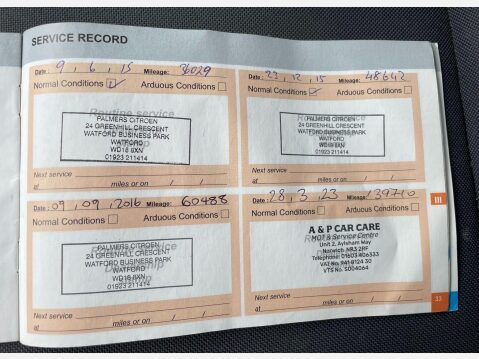 SERVICE RECORD
Date: 9, 6, 15 Mileage: 36029
Normal Conditions ☑ Arduous Conditions ☐
Routine service
PALMERS CITROEN
24 GREENHILL CRESCENT
WATFORD BUSINESS PARK
WATFORD
WD18 8XN
01923 211414
Next service
at miles or on / /
Date: 23, 12, 15 Mileage: 48642
Normal Conditions ☑ Arduous Conditions ☐
PALMERS CITROEN
24 GREENHILL CRESCENT
WATFORD BUSINESS PARK
WATFORD
WD18 8XN
01923 211414
Next service
at miles or on / /
Date: 09, 09, 2016 Mileage: 60488
Normal Conditions ☐ Arduous Conditions ☐
PALMERS CITROEN
24 GREENHILL CRESCENT
WATFORD BUSINESS PARK
WATFORD
WD18 8XN
01923 211414
Next service
at miles or on / /
Date: 28, 3, 23 Mileage: 139710
Normal Conditions ☐ Arduous Conditions ☐
A & P CAR CARE
MOT & Service Centre
Unit 2, Aylsham Way
Norwich NR3 2RF
Telephone: 01603 406333
VAT No. 941 8124 30
VTS No. S004064
Next service
at miles or on / /
III
33